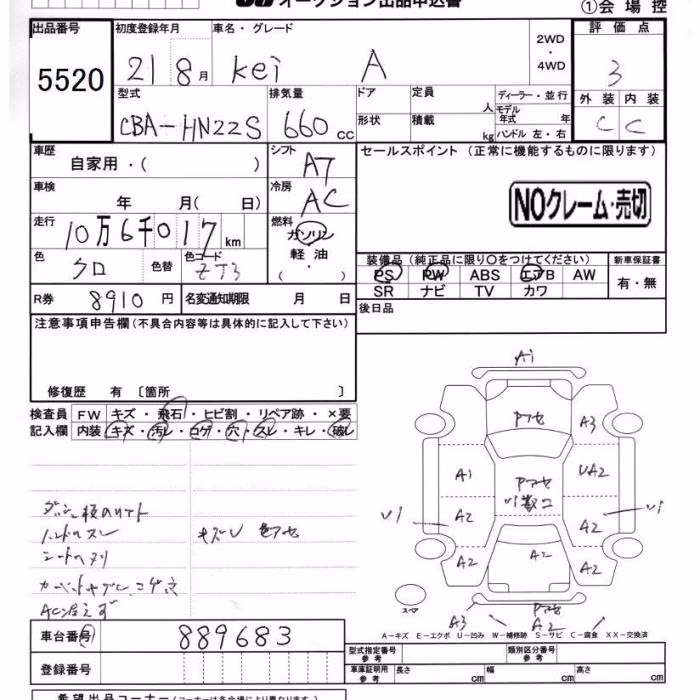 オークション出品申込書
①会場控
出品番号 初度登録年月 車名・グレード 2WD ・ 4WD 評価点
5520 21 8月 Kei A 3
外装 内装
C C
型式 排気量 ドア 定員 人 ディーラー・並行
CBA-HN22S 660cc 形状 積載 kg モデル年式 年
ハンドル 左・右
車歴 シフト セールスポイント (正常に機能するものに限ります)
自家用・( ) AT
車検 冷房
年 月( 日) AC
NOクレーム・売切
走行 燃料
10万6千017km ガソリン
軽油
・( )
色 色替 色コード
クロ ZJ3
装備品 (純正品に限り○をつけてください) 新車保証書
PS PW ABS エアB AW 有・無
SR ナビ TV カワ
R券 8910円 名変通知期限 月 日
後日品
注意事項申告欄(不具合内容等は具体的に記入して下さい)
修復歴 有 〔箇所 〕
検査員 FW キズ・飛石・ヒビ割・リペア跡・×要
記入欄 内装 キズ・汚レ・コゲ・穴・スレ・キレ・破レ
A1
Pアセ
A3
A1 Pアセ UA2
U1 A2 A2 U1
A2 A2 A2
スペア
A3 Pアセ
A2
ハンドルスレ
キズU 色アセ
A-キズ E-エクボ U-凹み W-補修跡 S-サビ C-腐食 XX-交換済
車台番号 889683
型式指定番号 参考 類別区分番号 参考
登録番号
車庫証明用 参考 長さ cm 幅 cm 高さ cm
希望出品コーナー(コーナーは各会場により異なります)